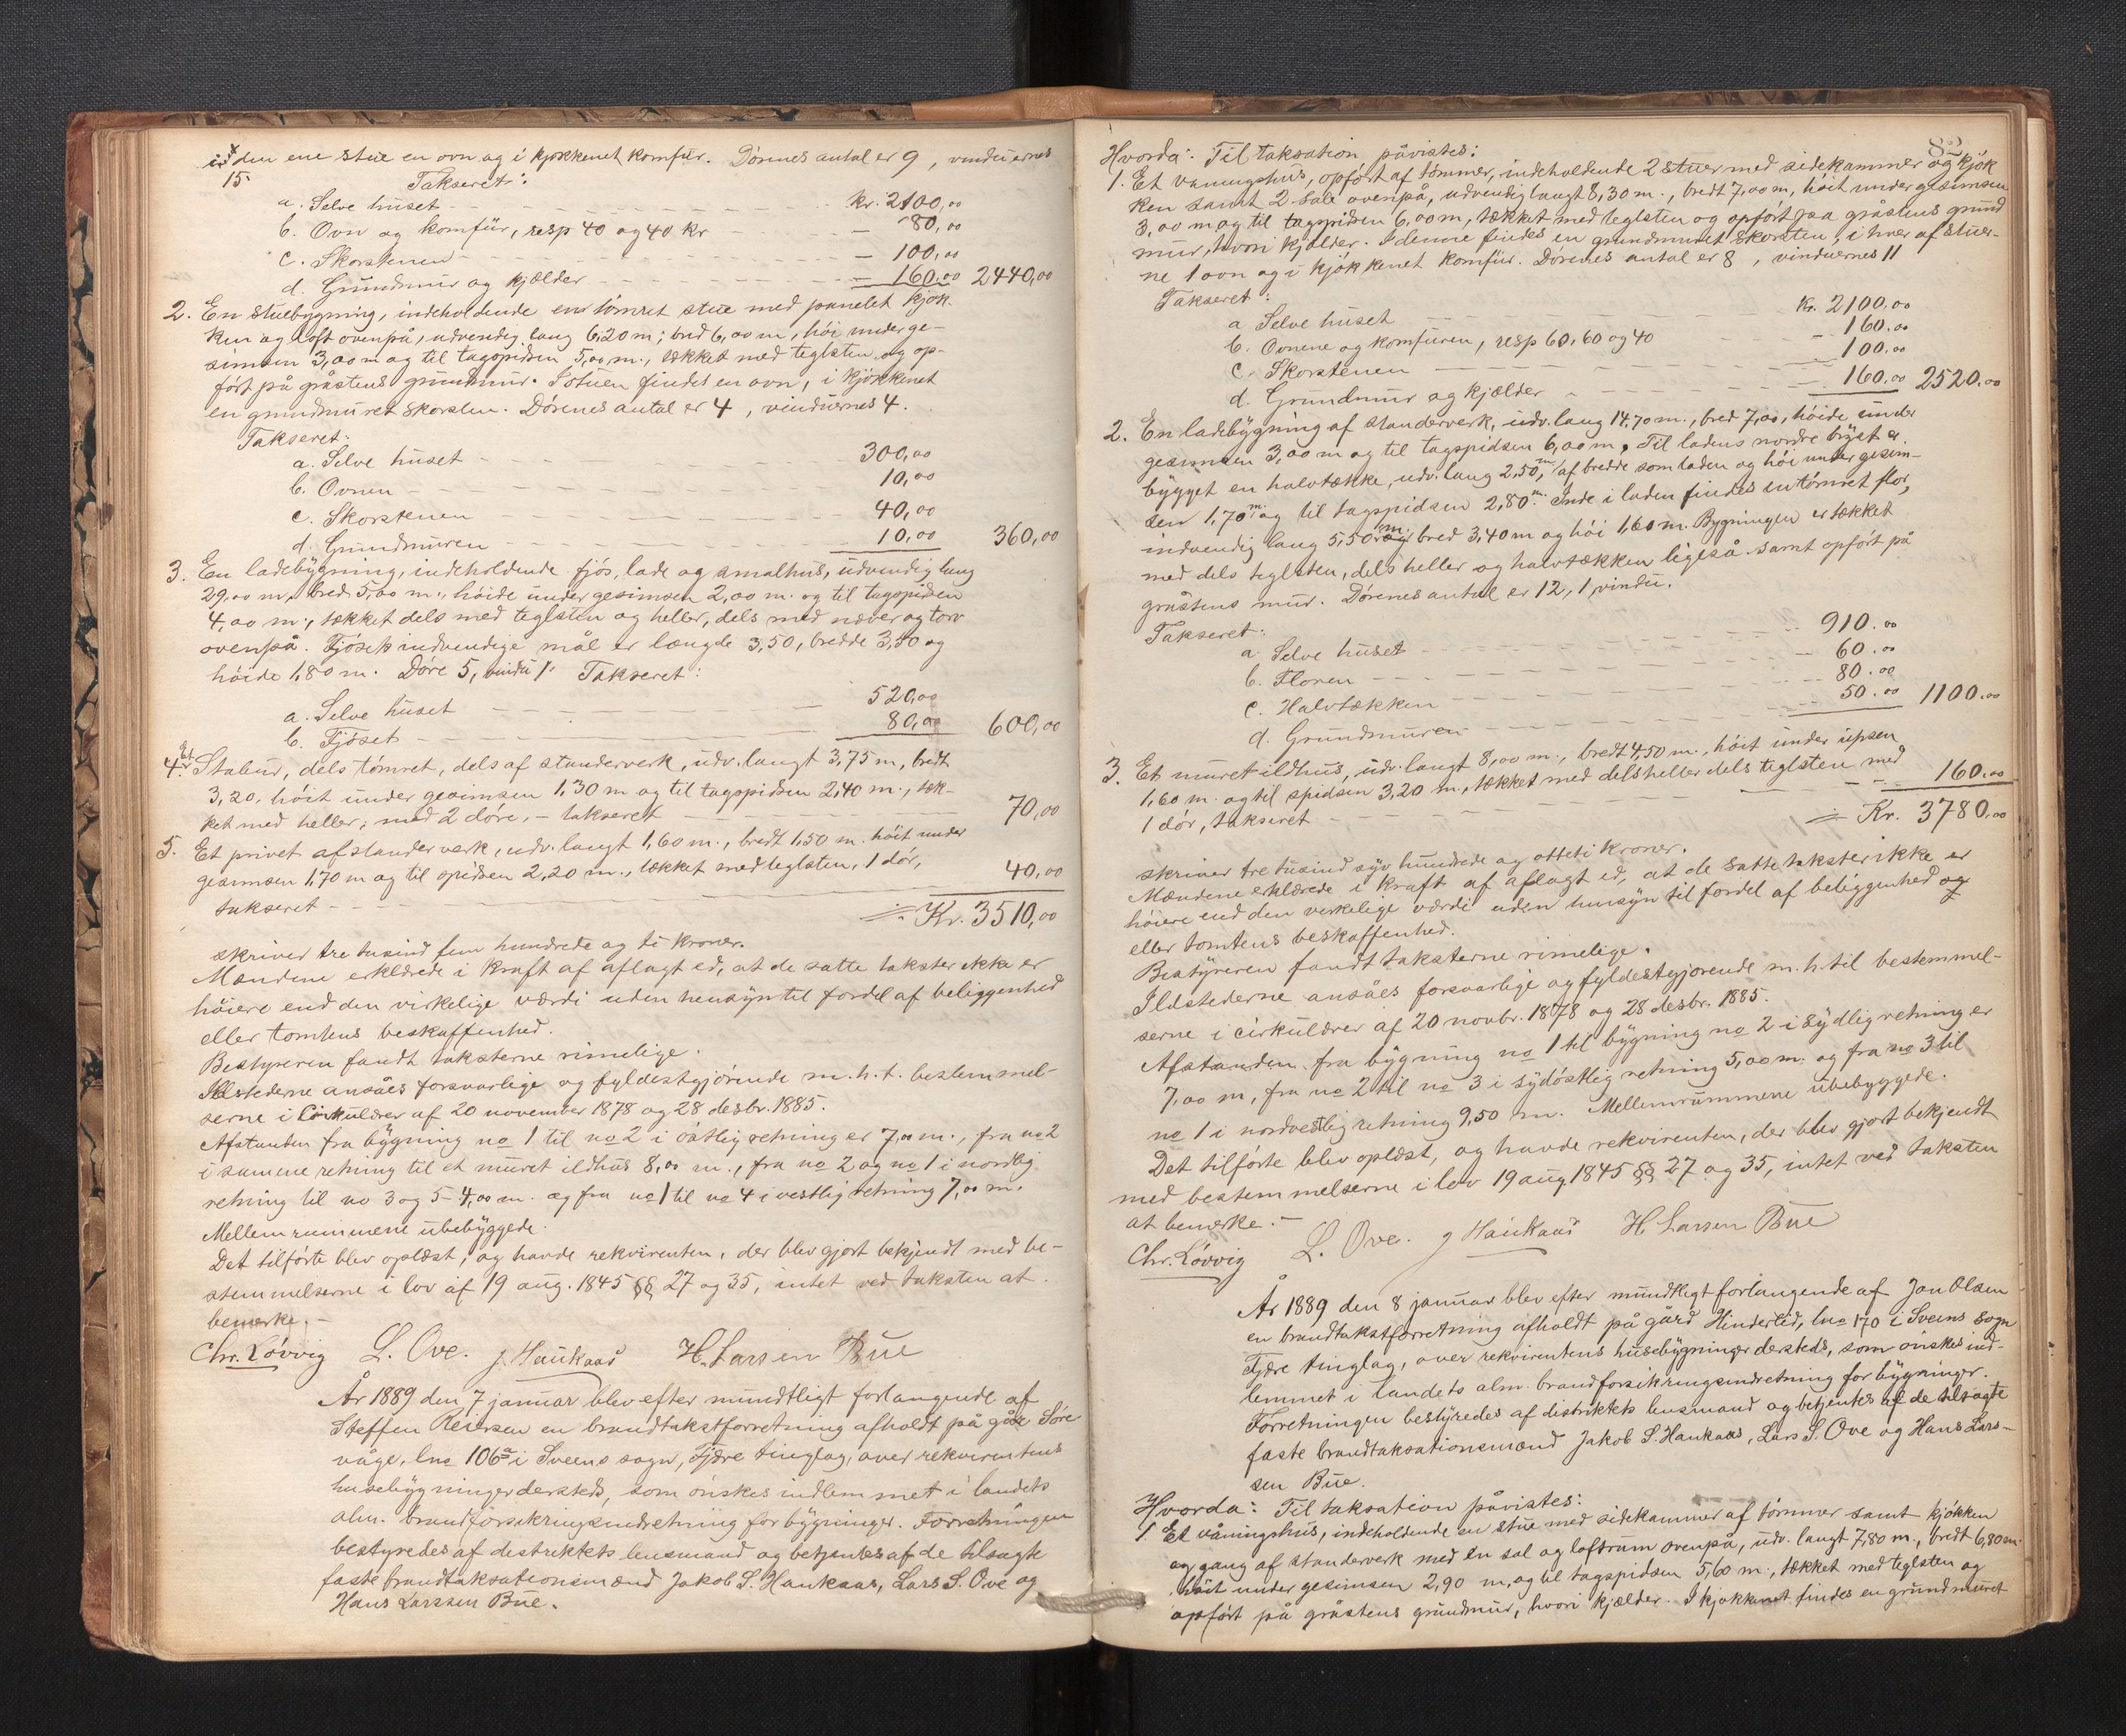 i den ene stue en ovn og i kjøkkenet komfür. Dörenes antal er 9, vinduernes
15.
Takseret:
a. Selve hüset kr. 2100,00
b. Ovn og komfür, resp 40 og 40 kr. - 80,00
c. Skorstenen - 100,00
d. Grundmur og kjælder - 160,00 2440,00
2. En stuebygning, indeholdende en tömret stue med panelet kjök-
ken og loft ovenpå, udvendig lang 6,20 m; bred 6,00 m, höi under ge-
simsen 3,00 m og til tagspidsen 5,00 m., tækket med teglsten og op-
fört på gråstens grundmur. I stuen findes en ovn, i kjökkenet
en grundmuret skorsten. Dörenes antal er 4, vinduernes 4.
Takseret:
a. Selve huset 300,00
b. Ovnen 10,00
c. Skorstenen 40,00
d. Grundmuren 10,00 360,00
3. En ladebygning, indeholdende fjös, lade og smalhus, udvendig lang
29,00 m, bred 5,00 m., höide under gesimsen 2,00 m. og til tagspidsen
4,00 m., tækket dels med teglsten og heller, dels med næver og torv
ovenpå. Fjösets indvendige mål er længde 3,50, bredde 3,50 og
höide 1,80 m. Döre 5, vindu 1. Takseret:
a. Selve huset 520,00
b. Fjöset 80,00 600,00
4. Et Stabur, dels tömret, dels af standerverk, udv. langt 3,75 m, bredt
3,20, höit under gesimsen 1,30 m og til tagspidsen 2,40 m., tæk-
ket med heller, med 2 döre, - takseret 70,00
5. Et privet af standerverk, udv. langt 1,60 m., bredt 1,50 m. höit under
gesimsen 1,70 m og til spidsen 2,20 m., tækket med teglsten, 1 dör,
takseret 40,00
Kr. 3510,00
skriver tre tusind fem hundrede og ti kroner.
Mændene erklærede i kraft af aflagt ed, at de satte takster ikke er
höiere end den virkelige værdi uden hensyn til fordel af beliggenhed
eller tomtens beskaffenhed.
Bestyreren fandt taksterne rimelige.
Ildstederne ansåes forsvarlige og fyldestgjörende m. h. t. bestemmel-
serne i Cirkulærer af 20 november 1878 og 28 desbr. 1885.
Afstanden fra bygning no 1 til no 2 i östlig retning er 7,00 m., fra no 2
i samme retning til et muret ildhus 8,00 m., fra no 2 og no 1 i nordlig
retning til no 3 og 5 - 4,00 m. og fra no 1 til no 4 i vestlig retning 7,00 m.
Mellemrummene ubebyggede.
Det tilförte blev oplæst, og havde rekvirenten, der blev gjort bekjendt med be-
stemmelserne i lov af 19 aug. 1845 §§ 27 og 35, intet ved taksten at
bemærke. -
Chr. Lövvig L. Ove. J Haukaas H. Larsen Bue
År 1889 den 7 januar blev efter mundtligt forlangende af
Steffen Reiersen en brandtakstforretning afholdt på gård Söre
våge, lno 106a i Sveens sogn, Fjære tinglag, over rekvirentens
husebygninger dersteds, som önskes indlemmet i landets
alm. brandforsikringsindretning for bygninger. Forretningen
bestyredes af distriktets lensmand og betjentes af de tilsagte
faste brandtaksationsmænd Jakob S. Haukaas, Lars S. Ove og
Hans Larssen Bue.
82
Hvorda: Til taksation påvistes:
1. Et våningshus, opfört af tömmer, indeholdende 2 stuer med sidekammer og kjök
ken samt 2 sale ovenpå, udvendig langt 8,30 m., bredt 7,00 m, höit under gesimsen
3,00 m og til tagspidsen 6,00 m, tækket med teglsten og opfört paa gråstens grund
mur, hvori kjælder. I denne findes en grundmuret skorsten, i hver af stuer-
ne 1 ovn og i kjökkenet komfur. Dörenes antal er 8, vinduernes 11
Takseret:
a Selve huset Kr. 2100.00
b. Ovnene og komfuren, resp 60, 60 og 40 - 160.00
c. Skorstenen 100.00
d. Grundmur og kjælder 160.00 2520.00
2. En ladebygning af standerverk, udv. lang 14,70 m., bred 7,00, höide under
gesimsen 3,00 m og til tagspidsen 6,00 m. Til ladens nordre byst er
bygget en halvtække, udv. lang 2,50 m, af bredde som laden og höi under gesim-
sen 1,70 m. og til tagspidsen 2,80 m. Inde i laden findes en tömret flor,
indvendig lang 5,50 m. bred 3,40 m og höi 1,60 m. Bygningen er tækket
med dels teglsten, dels heller og halvtækken ligeså samt opfört på
gråstens mur. Dörenes antal er 12, 1 vindu.
Takseret:
a Selve huset 910.00
b. Floren 60.00
c. Halvtækken 80.00
d. Grundmuren 50.00 1100.00
3. Et muret ildhus, udv. langt 8,00 m., bredt 4,50 m., höit under upsen
1,60 m. og til spidsen 3,20 m., tækket med dels heller dels teglsten med
1 dör, takseret 160.00
Kr. 3780.00
skriver tre tusind syv hundrede og otteti kroner.
Mændene erklærede i kraft af aflagt ed, at de satte takster ikke er
höiere end den verkelige værdi uden hensyn til fordel af beliggenhed og
eller tomtens beskaffenhed.
Bestyreren fandt taksterne rimelige.
Ildstederne ansåes forsvarlige og fyldestgjorende m. h. til bestemmel-
serne i cirkulærer af 20 novbr. 1878 og 28 desbr. 1885.
Afstanden fra bygning no 1 til bygning no 2 i sydlig retning er
7,00 m, fra no 2 til no 3 i sydöstlig retning 5,00 m. og fra no 3 til
no 1 i nordvestlig retning 9,50 m. Mellemrummene ubebyggede.
Det tilförte blev oplæst, og havde rekvirenten, der blev gjort bekjendt
med bestemmelserne i lov 19 aug. 1845 §§ 27 og 35, intet ved taksten
at bemærke. -
Chr. Lövvig L. Ove. J Haukaas H Larsen Bue
År 1889 den 8 januar blev efter mundtligt forlangende af Jon Olsen
en brandtakstforretning afholdt på gård Hinderlid, lno 170 i Sveens sogn
Fjære tinglag, over rekvirentens husebygninger dersteds, som önskes ind-
lemmet i landets alm. brandforsikringsindretning for bygninger.
Forretningen bestyredes af distriktets lensmand og betjentes af de tilsagte
faste brandtaksationsmænd Jakob S. Haukaas, Lars S. Ove og Hans Lars-
sen Bue.
Hvorda: Til taksation påvistes:
1. Et våningshus, indeholdende en stue med sidekammer af tömmer samt kjökken
og gang af standerverk med en sal og loftrum ovenpå, udv. langt 7,80 m., bredt 6,80 m.
höit under gesimsen 2,90 m, og til tagspidsen 5,60 m., tækket med teglsten og
opfört på gråstens grundmur, hvori kjælder. I kjøkkenet findes en grundmuret